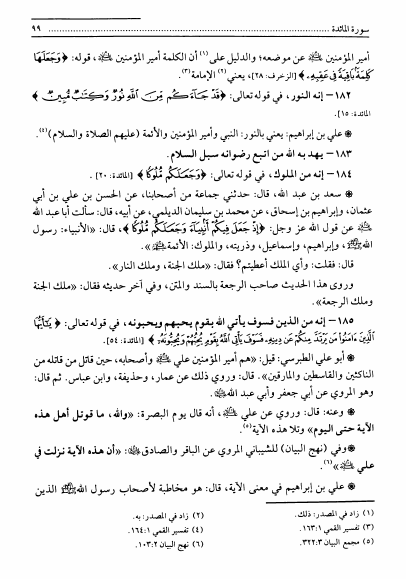 سورة المائدة ........ ٩٩
أمير المؤمنين ﷺ عن موضعه؛ والدليل على (١) أن الكلمة أمير المؤمنين ﷺ، قوله: ﴿وَجَعَلَهَا
كَلِمَةً بَاقِيَةً فِي عَقِبِهِ﴾ [الزخرف: ٢٨]، يعني (٢) الإمامة (٣).
١٨٢ – إنه النور، في قوله تعالى: ﴿قَدْ جَاءَكُم مِّنَ اللَّهِ نُورٌ وَكِتَابٌ مُّبِينٌ﴾
[المائدة: ١٥].
❁ علي بن إبراهيم: يعني بالنور: النبي وأمير المؤمنين والأئمة (عليهم الصلاة والسلام) (٤).
١٨٣ – يهد به الله من اتبع رضوانه سبل السلام.
١٨٤ – إنه من الملوك، في قوله تعالى: ﴿وَجَعَلَكُم مُّلُوكًا﴾ [المائدة: ٢٠].
❁ سعد بن عبد الله، قال: حدثني جماعة من أصحابنا، عن الحسن بن علي بن أبي
عثمان، وإبراهيم بن إسحاق، عن محمد بن سليمان الديلمي، عن أبيه، قال: سألت أبا عبد الله
ﷺ عن قول الله عز وجل: ﴿إِذْ جَعَلَ فِيكُمْ أَنبِيَاءَ وَجَعَلَكُم مُّلُوكًا﴾، قال: «الأنبياء: رسول
الله ﷺ، وإبراهيم، وإسماعيل، وذريته، والملوك: الأئمة ﷺ».
قال: فقلت: وأي الملك أعطيتم؟ فقال: «ملك الجنة، وملك النار».
وروى هذا الحديث صاحب الرجعة بالسند والمتن، وفي آخر حديثه فقال: «ملك الجنة
وملك الرجعة».
١٨٥ – إنه من الذين فسوف يأتي الله بقوم يحبهم ويحبونه، في قوله تعالى: ﴿يَا أَيُّهَا
الَّذِينَ آمَنُوا مَن يَرْتَدَّ مِنكُمْ عَن دِينِهِ فَسَوْفَ يَأْتِي اللَّهُ بِقَوْمٍ يُحِبُّهُمْ وَيُحِبُّونَهُ﴾ [المائدة: ٥٤].
❁ أبو علي الطبرسي: قيل: «هم أمير المؤمنين علي ﷺ وأصحابه، حين قاتل من قاتله من
الناكثين والقاسطين والمارقين». قال: وروي ذلك عن عمار، وحذيفة، وابن عباس. ثم قال:
وهو المروي عن أبي جعفر وأبي عبد الله ﷺ.
❁ وعنه: قال: وروي عن علي ﷺ، أنه قال يوم البصرة: «والله، ما قوتل أهل هذه
الآية حتى اليوم» وتلا هذه الآية (٥).
❁ وفي (نهج البيان) للشيباني المروي عن الباقر والصادق ﷺ: «أن هذه الآية نزلت في
علي ﷺ» (٦).
❁ علي بن إبراهيم في معنى الآية، قال: هو مخاطبة لأصحاب رسول الله ﷺ الذين
(١) زاد في المصدر: ذلك.
(٢) زاد في المصدر: به.
(٣) تفسير القمي ١: ١٦٣.
(٤) تفسير القمي ١: ١٦٤.
(٥) مجمع البيان ٣: ٣٢٢.
(٦) نهج البيان ٢: ١٠٣.